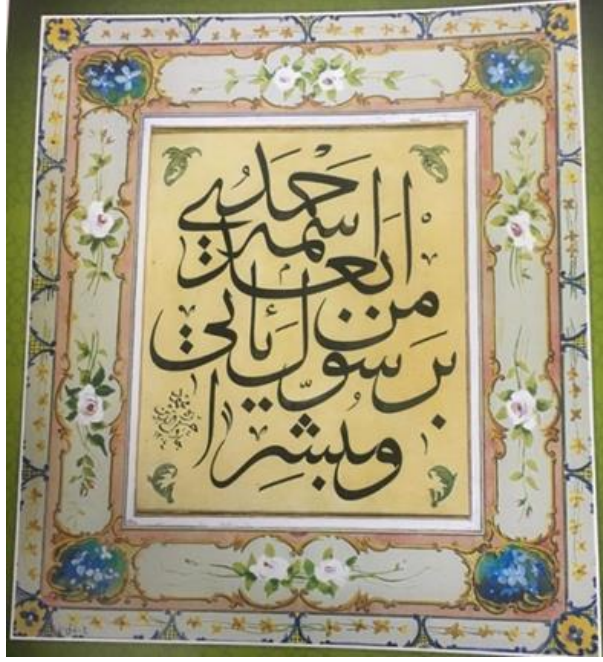 ومبشرا
برسول يأتي
من بعدي
اسمه احمد